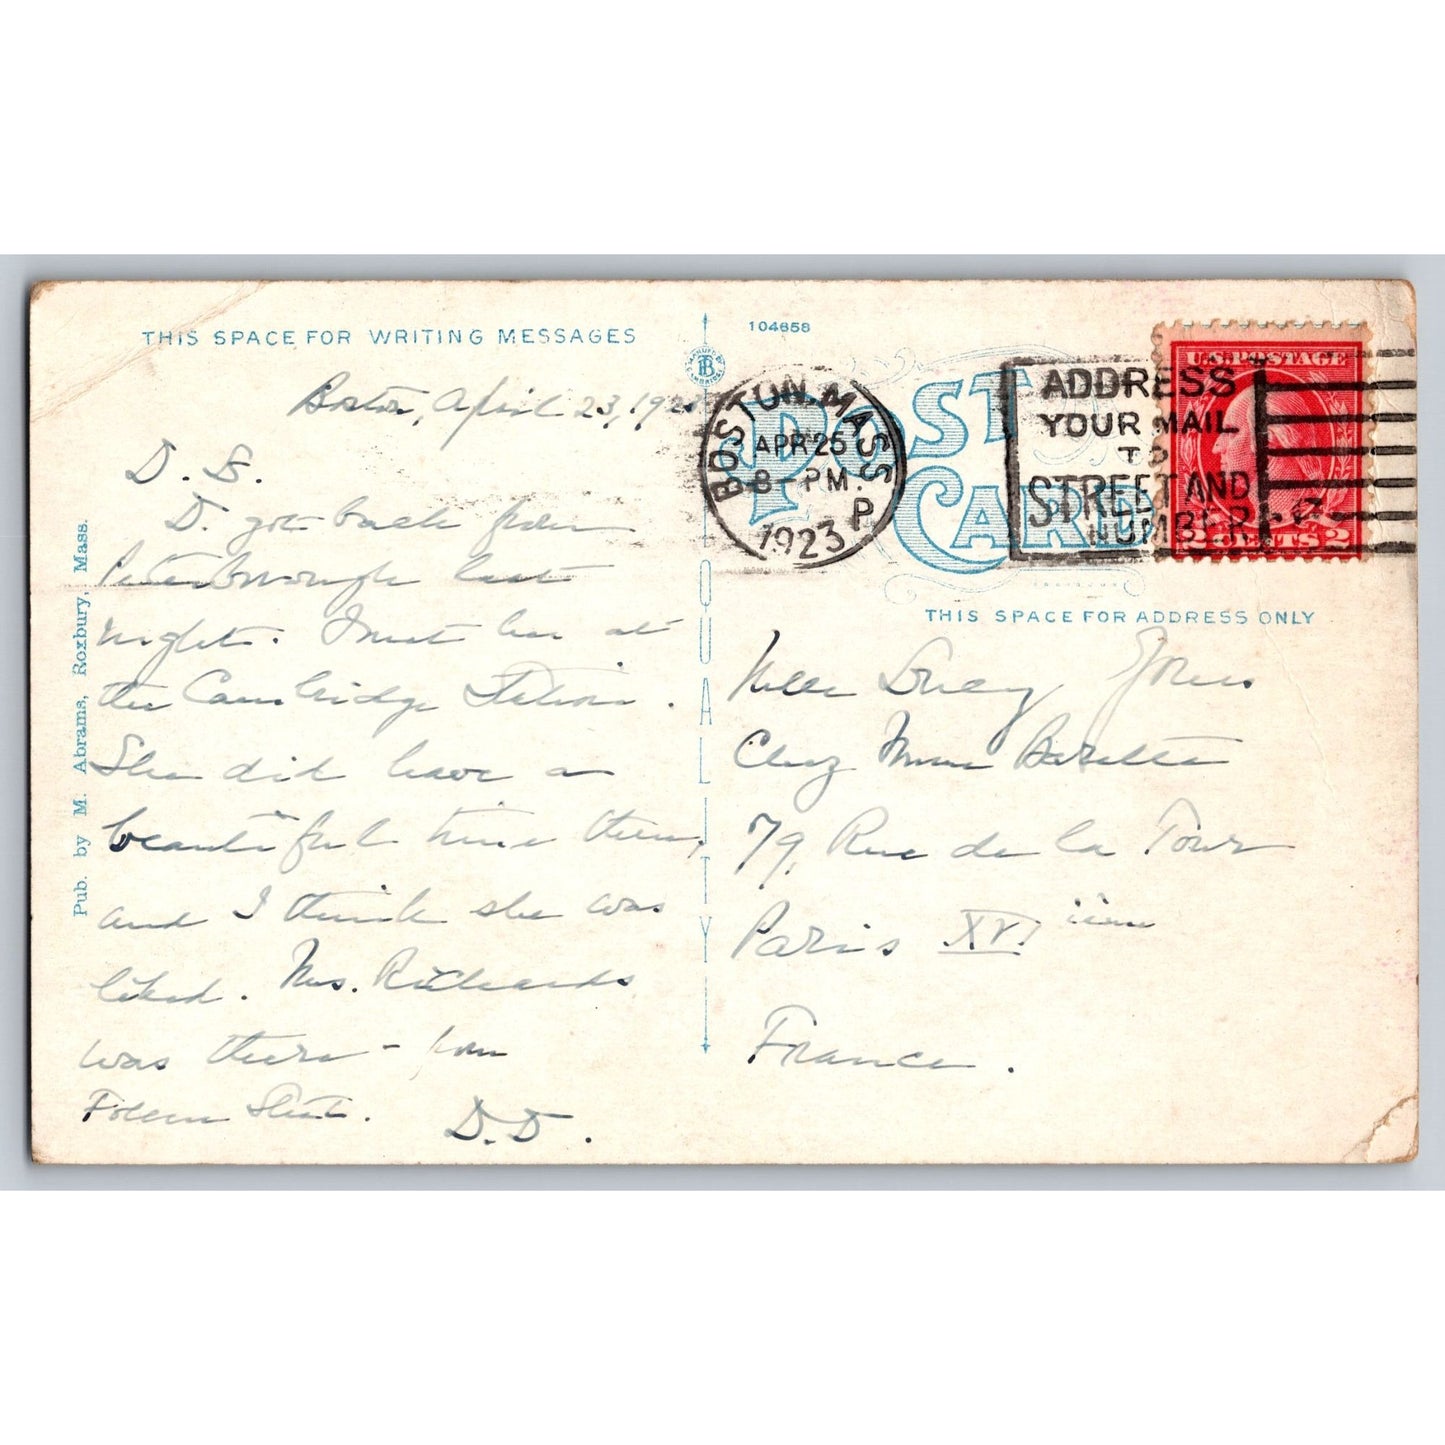 THIS SPACE FOR WRITING MESSAGES
Boston, April 23, 1923
D. B.
D. got back from
Peterborough last
night. I met her at
the Cambridge Station.
She did have a
beautiful time there,
and I think she was
liked. Mrs. Richards
was there - from
Street.
D.D.
Pub. by M. Abrams, Roxbury, Mass.
QUALITY
104658
POST CARD
BOSTON, MASS.
APR 25
8 - PM.
1923
P
ADDRESS
YOUR MAIL
TO
STREET AND
NUMBER
U.S. POSTAGE
2 CENTS 2
THIS SPACE FOR ADDRESS ONLY
Jones
Chez Mme
79, Rue de la Tour
Paris XVIième
France.